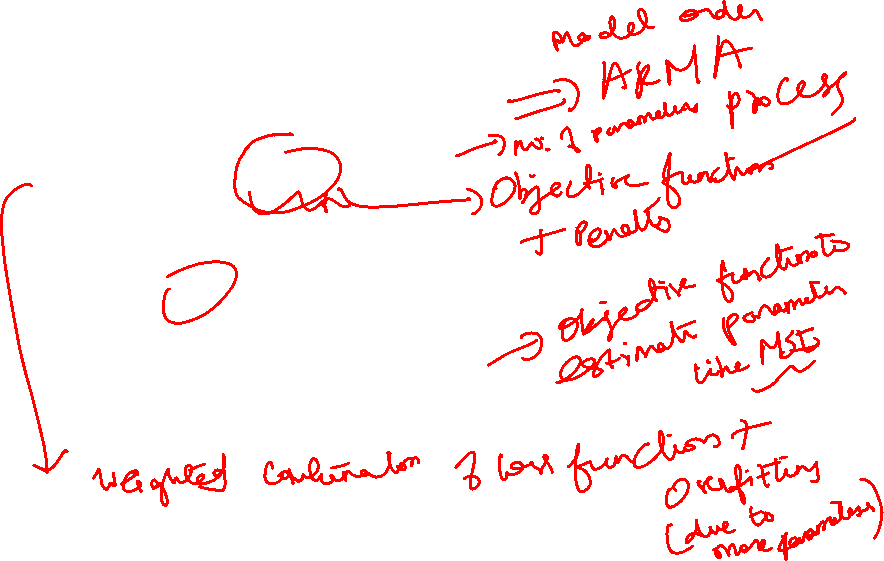 model order
⇒ ARMA
→ no. of parameters process
→ Objective function
+ Penalty
→ Objective function to
estimate parameter
like MSE
weighted combination of loss function +
Overfitting
(due to
more parameters)